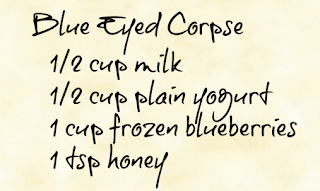 Blue Eyed Corpse
1/2 cup milk
1/2 cup plain yogurt
1 cup frozen blueberries
1 tsp honey